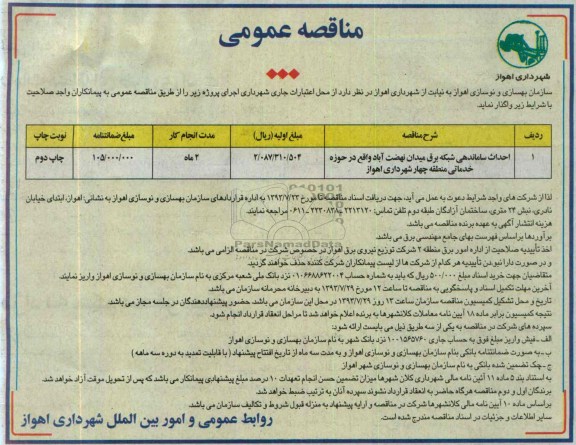 مناقصه عمومی
شهرداری اهواز
سازمان بهسازی و نوسازی اهواز به نیابت از شهرداری اهواز در نظر دارد از محل اعتبارات جاری شهرداری اجرای پروژه زیر را از طریق مناقصه عمومی به پیمانکاران واجد صلاحیت
با شرایط زیر واگذار نماید.
ردیف شرح مناقصه مبلغ اولیه (ریال) مدت انجام کار مبلغ ضمانتنامه نوبت چاپ
۱ احداث ساماندهی شبکه برق میدان نهضت آباد واقع در حوزه ۲/۰۸۷/۳۱۰/۵۰۴ ۴ ماه ۱۰۵/۰۰۰/۰۰۰ چاپ دوم
خدماتی منطقه چهار شهرداری اهواز
لذا از شرکت های واجد شرایط دعوت به عمل می آید، جهت دریافت اسناد مناقصه تا مورخ ۱۳۹۳/۷/۲۳ به اداره قراردادهای سازمان بهسازی و نوسازی اهواز به نشانی: اهواز، ابتدای خیابان
نادری، نبش ۲۴ متری، ساختمان آزادگان طبقه دوم تلفن تماس: ۲۲۱۳۱۲۰ - ۰۶۱۱ مراجعه نمایند.
هزینه انتشار آگهی به عهده برنده مناقصه می باشد.
برآوردها براساس فهرست بهای جامع مهندسی برق می باشد.
اخذ تأییدیه صلاحیت از اداره امور برق منطقه ۲ شرکت توزیع نیروی برق اهواز در خصوص شرکت در مناقصه الزامی می باشد.
و در صورت دارا نبودن تأییدیه هر کدام از شرکت ها از لیست پیمانکاران شرکت کننده حذف خواهند گردید.
متقاضیان جهت خرید اسناد مبلغ ۵۰۰/۰۰۰ ریال که باید به شماره حساب ۰۱۰۶۶۸۸۶۲۲۰۰۴ نزد بانک ملی شعبه مرکزی به نام سازمان بهسازی و نوسازی اهواز واریز نمایند.
آخرین مهلت تکمیل اسناد و پاسخگویی به مناقصه تا ساعت ۱۲ مورخ ۱۳۹۳/۷/۲۹ به دبیرخانه محرمانه سازمان می باشد.
تاریخ و محل تشکیل کمیسیون مناقصه سازمان ساعت ۱۳ روز ۱۳۹۳/۷/۲۹ در محل این سازمان می باشد. حضور پیشنهاددهندگان در جلسه مجاز می باشد.
نتیجه کمیسیون برابر ماده ۱۸ آیین نامه معاملات کلانشهرها به برنده اعلام خواهد شد تا مراحل انعقاد قرارداد انجام شود
سپرده های شرکت در مناقصه به یکی از سه طریق ذیل می بایست ارائه شود:
الف ـ فیش واریز مبلغ فوق به حساب جاری ۱۰۰۱۵۶۵۷۶۰ نزد بانک شهر به نام سازمان بهسازی و نوسازی اهواز
ب ـ به صورت ضمانتنامه بانکی بنام سازمان بهسازی و نوسازی اهواز و به مدت سه ماه از تاریخ افتتاح پیشنهاد ( با قابلیت تمدید به دوره سه ماهه )
ج ـ چک تضمین شده بانکی به نام سازمان بهسازی و نوسازی شهر اهواز
به استناد بند ۵ ماده ۱۱ آئین نامه مالی شهرداری کلان شهرها میزان تضمین حسن انجام تعهدات ۱۰ درصد مبلغ پیشنهادی پیمانکار می باشد که پس از تحویل موقت آزاد خواهد شد.
برندگان اول و دوم مناقصه هرگاه حاضر به انعقاد قرارداد نشوند سپرده آنان به ترتیب ضبط خواهد شد.
براساس ماده ۱۰ آیین نامه مالی کلانشهرها شرکت در مناقصه و ارایه پیشنهاد به منزله قبول شروط و تکالیف سازمان می باشد.
سایر اطلاعات و جزئیات در اسناد مناقصه مندرج شده است.
روابط عمومی و امور بین الملل شهرداری اهواز
ParsNamadData